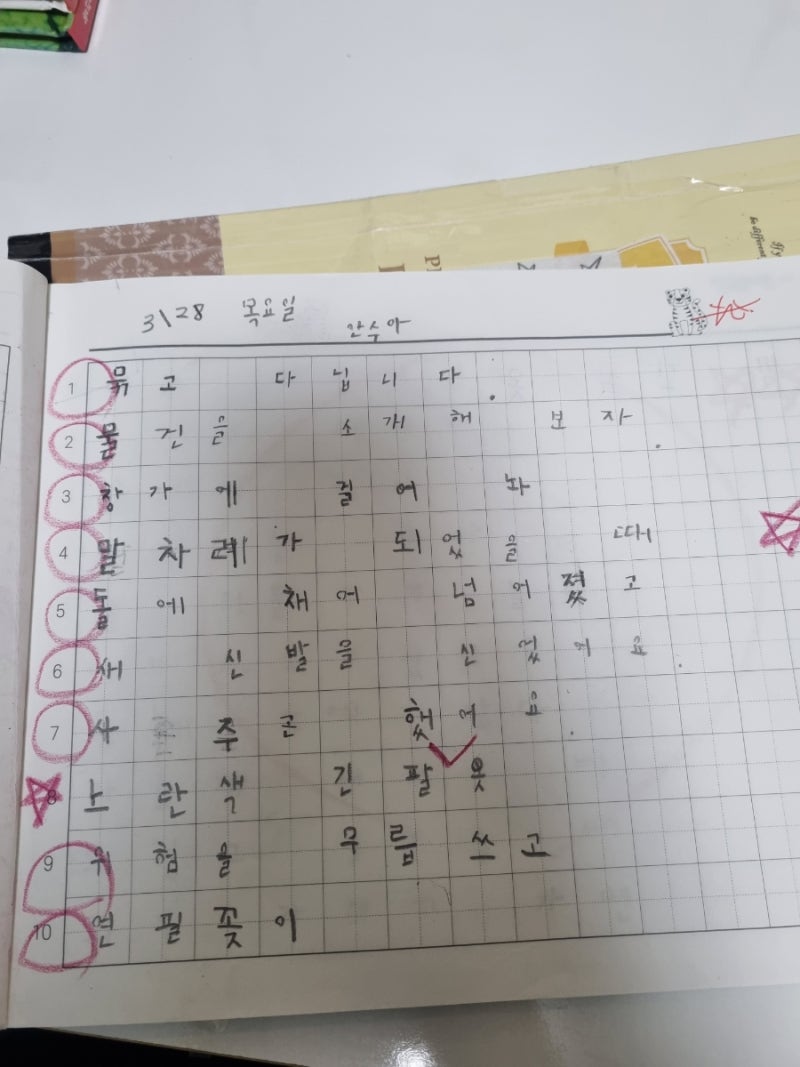 3\28 목요일
안수아
1 묶고 다닙니다.
2 물건을 소개해 보자.
3 창가에 걸어 놔
4 말차례가 되었을 때
5 돌에 채여 넘어졌고
6 새 신발을 신었어요.
7 사주곤 했어요
8 노란색 긴팔 옷
9 위험을 무릅쓰고
10 연필꽂이